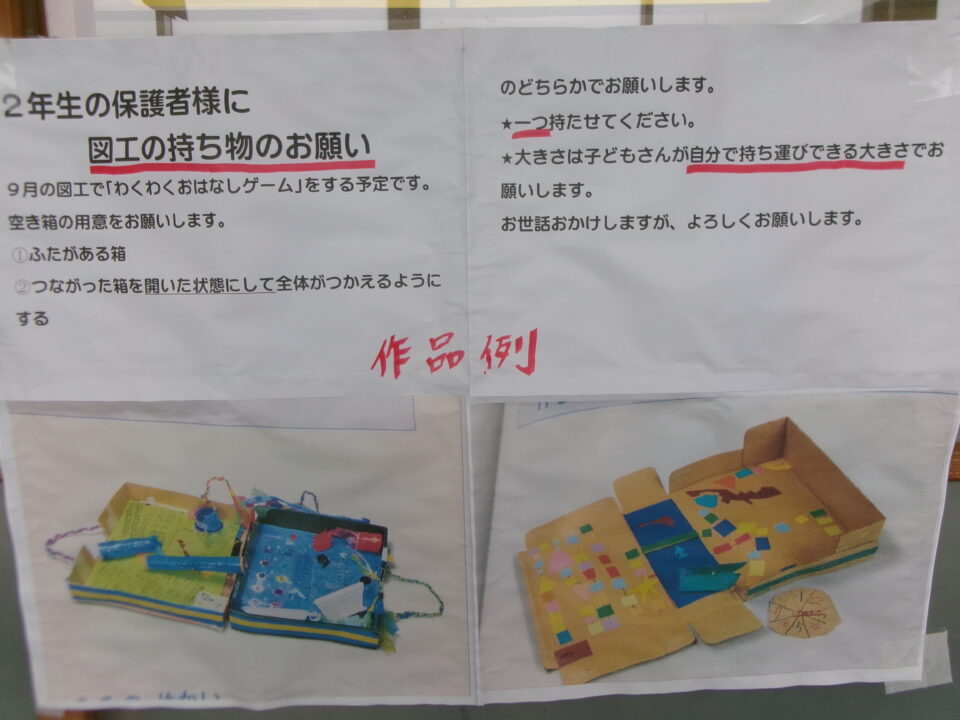 2年生の保護者様に
図工の持ち物のお願い
9月の図工で「わくわくおはなしゲーム」をする予定です。
空き箱の用意をお願いします。
①ふたがある箱
②つながった箱を開いた状態にして全体がつかえるように
する
のどちらかでお願いします。
★一つ持たせてください。
★大きさは子どもさんが自分で持ち運びできる大きさでお
願いします。
お世話おかけしますが、よろしくお願いします。
作品例